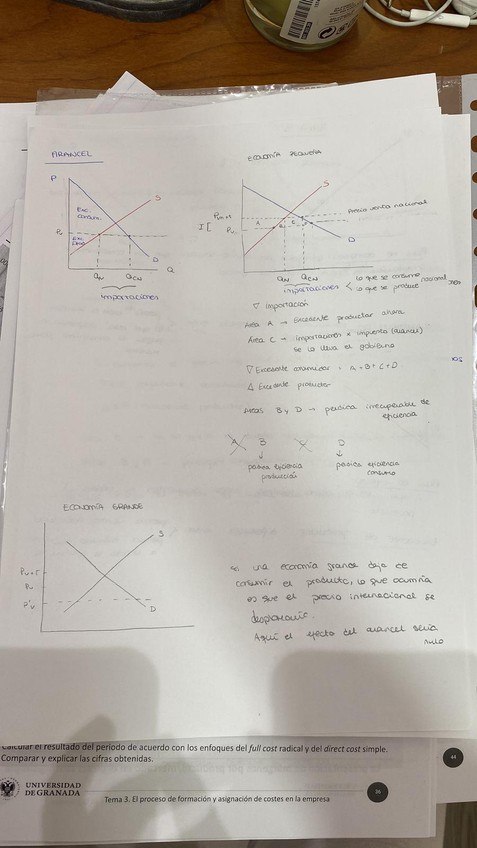 ARANCEL
P
S
Exc.
consum.
Pv
Exc
prod
D
QN
QCN
Q
importaciones
ECONOMÍA PEQUEÑA
S
Precio venta nacional
Pv+t
A
B
C
D
Pv
D
QN
QCN
importaciones
lo que se consume
lo que se produce
nacional
▽ importación
Área A → Excedente productor ahora
Área C → importaciones × impuesto (arancel)
se lo lleva el gobierno
▽ Excedente consumidor = A+B+C+D
△ Excedente productor
Áreas B y D → pérdida irrecuperable de
eficiencia
A B C D
↓ ↓
pérdida eficiencia
producción
pérdida eficiencia
consumo
ECONOMÍA GRANDE
S
Pv+t
Pv
P'v
D
Si una economía grande deja de
consumir el producto, lo que ocurriría
es que el precio internacional se
desplomaría.
Aquí el efecto del arancel sería
nulo
Calcular el resultado del periodo de acuerdo con los enfoques del full cost radical y del direct cost simple.
Comparar y explicar las cifras obtenidas.
44
UNIVERSIDAD
DE GRANADA
Tema 3. El proceso de formación y asignación de costes en la empresa